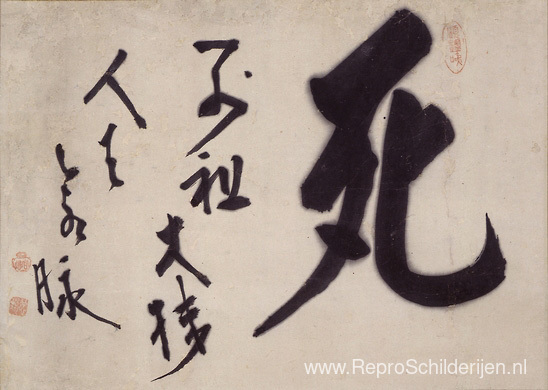 死
佛祖大機
人天命脉
www.ReproSchilderijen.nl